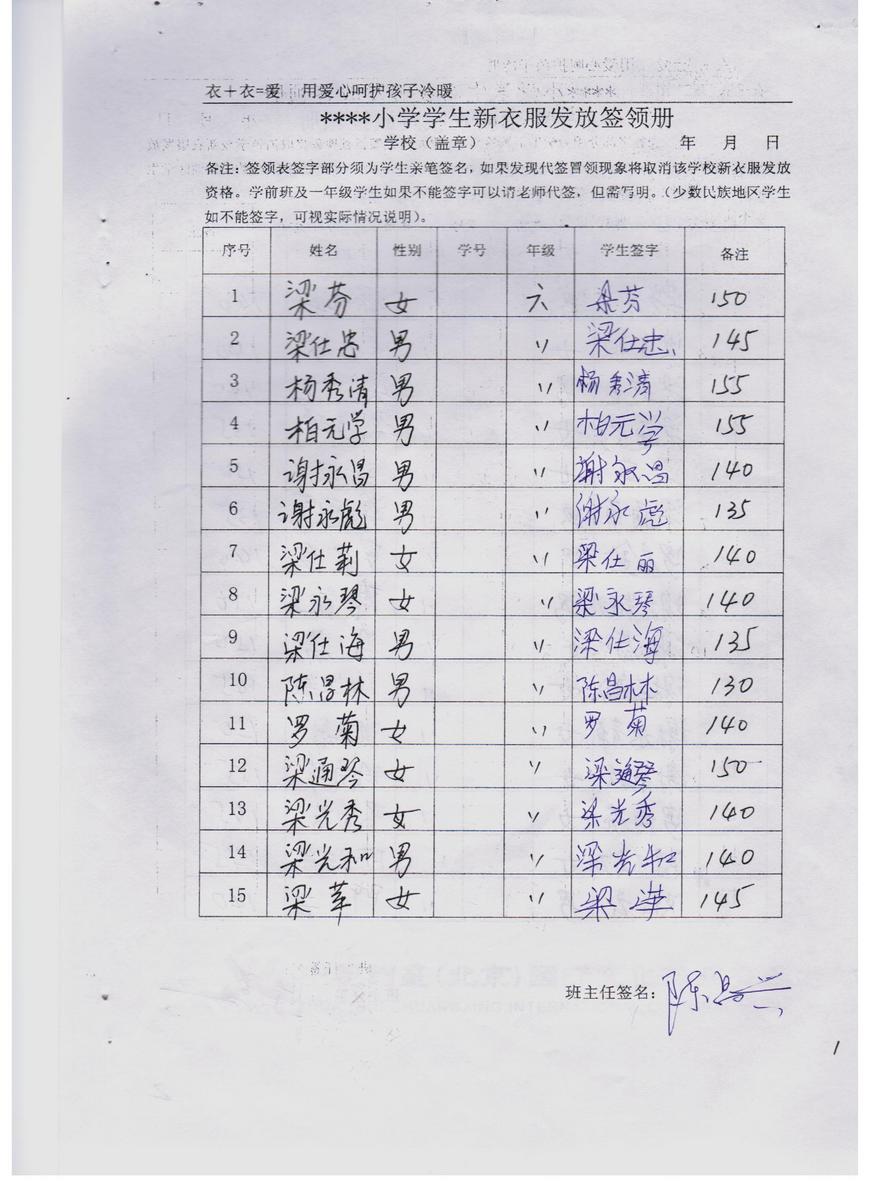 衣+衣=爱　用爱心呵护孩子冷暖
****小学学生新衣服发放签领册
学校（盖章）　年　月　日
备注：签领表签字部分须为学生亲笔签名，如果发现代签冒领现象将取消该学校新衣服发放
资格。学前班及一年级学生如果不能签字可以请老师代签，但需写明。（少数民族地区学生
如不能签字，可视实际情况说明）。
序号 姓名 性别 学号 年级 学生签字 备注
1 梁芬 女 六 梁芬 150
2 梁仕忠 男 〃 梁仕忠 145
3 杨秀清 男 〃 杨秀清 155
4 柏元学 男 〃 柏元学 155
5 谢永昌 男 〃 谢永昌 140
6 谢永彪 男 〃 谢永彪 135
7 梁仕莉 女 〃 梁仕丽 140
8 梁永琴 女 〃 梁永琴 140
9 梁仕海 男 〃 梁仕海 135
10 陈昌林 男 〃 陈昌林 130
11 罗菊 女 〃 罗菊 140
12 梁通琴 女 〃 梁通琴 150
13 梁光秀 女 〃 梁光秀 140
14 梁光和 男 〃 梁光和 140
15 梁苹 女 〃 梁 145
班主任签名：陈昌兴
1